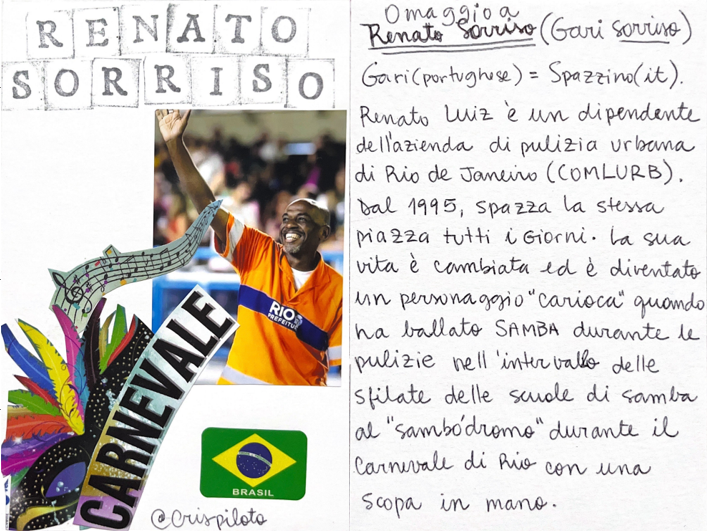 RENATO
SORRISO
RIO
PREFEITURA
CARNEVALE
BRASIL
@crispilota
Omaggio a
Renato Sorriso (Gari sorriso)
Gari (portughese) = Spazzino (it).
Renato Luiz è un dipendente
dell'azienda di pulizia urbana
di Rio de Janeiro (COMLURB).
Dal 1995, spazza la stessa
piazza tutti i Giorni. La sua
vita è cambiata ed è diventato
un personaggio "carioca" quando
ha ballato SAMBA durante le
pulizie nell'intervallo delle
sfilate delle scuole di samba
al "sambó'dromo" durante il
Carnevale di Rio con una
scopa in mano.